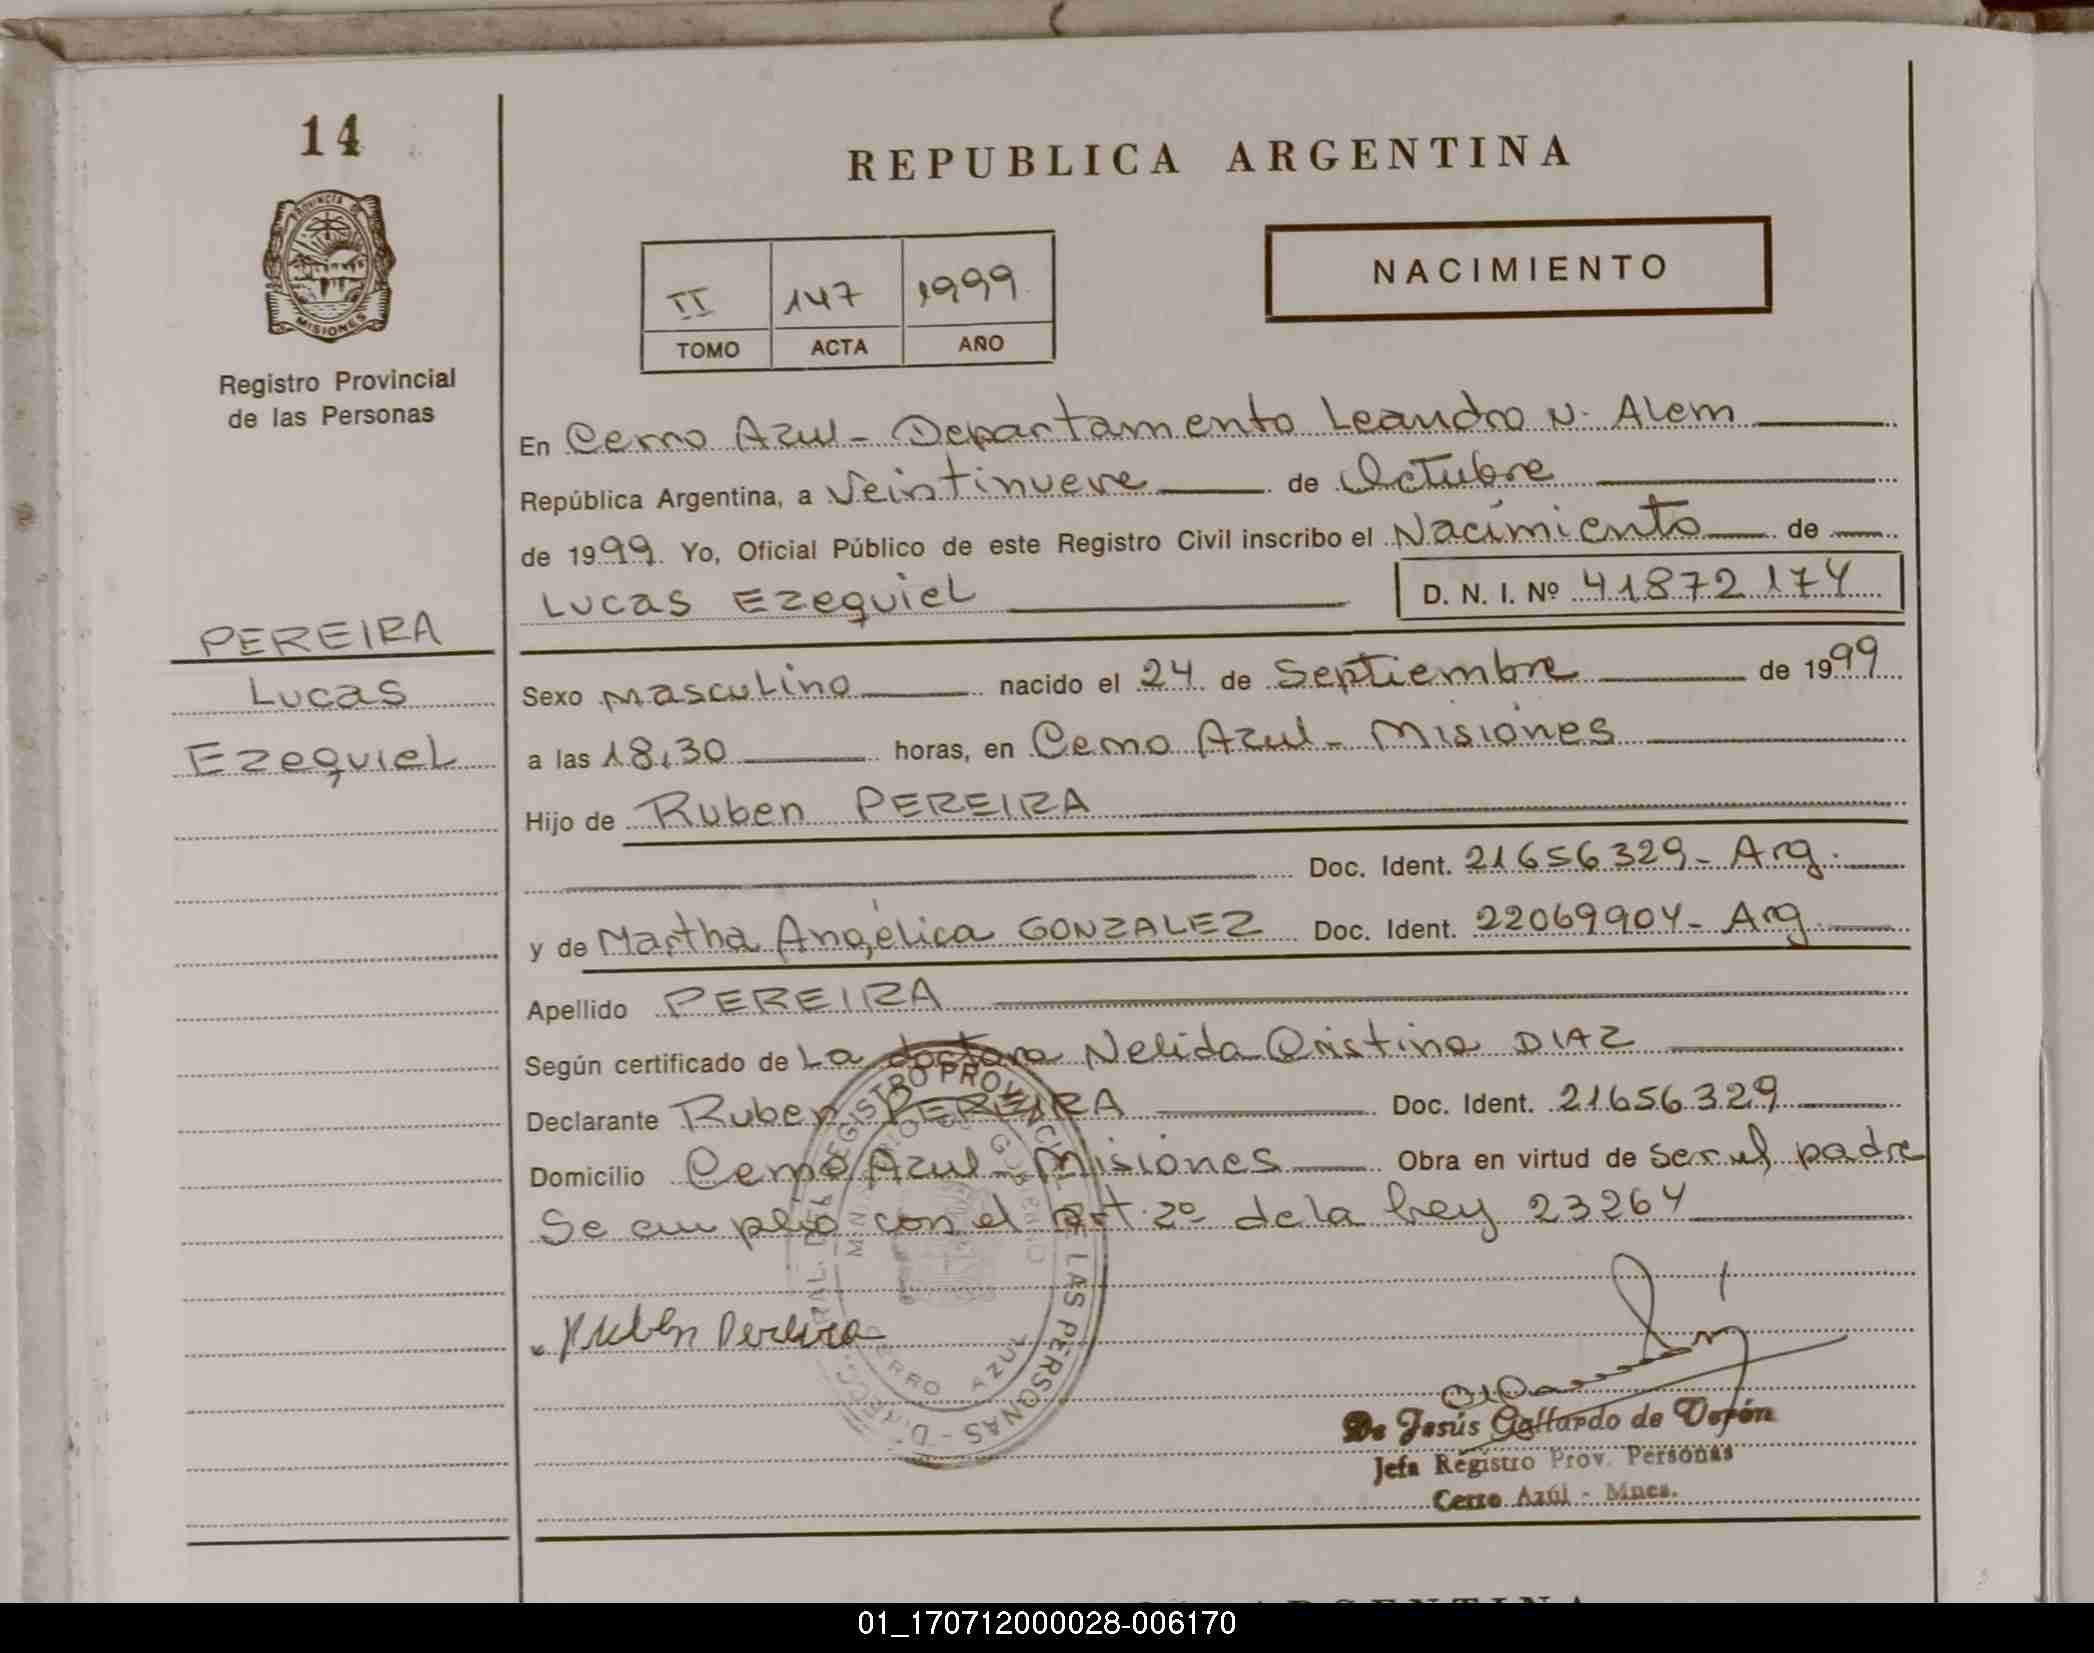 14
PROVINCIA DE
MISIONES
Registro Provincial
de las Personas
PEREIRA
Lucas
Ezequiel
REPUBLICA ARGENTINA
II 147 1999
TOMO ACTA AÑO
NACIMIENTO
En Cerro Azul - Departamento Leandro N. Alem
República Argentina, a Veintinueve de Octubre
de 1999. Yo, Oficial Público de este Registro Civil inscribo el Nacimiento de
Lucas Ezequiel D. N. I. Nº 41872174
Sexo masculino nacido el 24 de Septiembre de 1999
a las 18,30 horas, en Cerro Azul - Misiones
Hijo de Ruben PEREIRA
Doc. Ident. 21656329 - Arg.
y de Martha Angélica GONZALEZ Doc. Ident. 22069904 - Arg.
Apellido PEREIRA
Según certificado de La doctora Nelida Cristina DIAZ
Declarante Ruben PEREIRA Doc. Ident. 21656329
Domicilio Cerro Azul - Misiones Obra en virtud de ser el padre
Se cumplio con el Art. 2º de la Ley 23264
REGISTRO PROVINCIAL DE LAS PERSONAS
CERRO AZUL
Ruben Pereira
De Jesús Gallardo de Verón
Jefa Registro Prov. Personas
Cerro Azúl - Mnes.
ARGENTINA
01_170712000028-006170